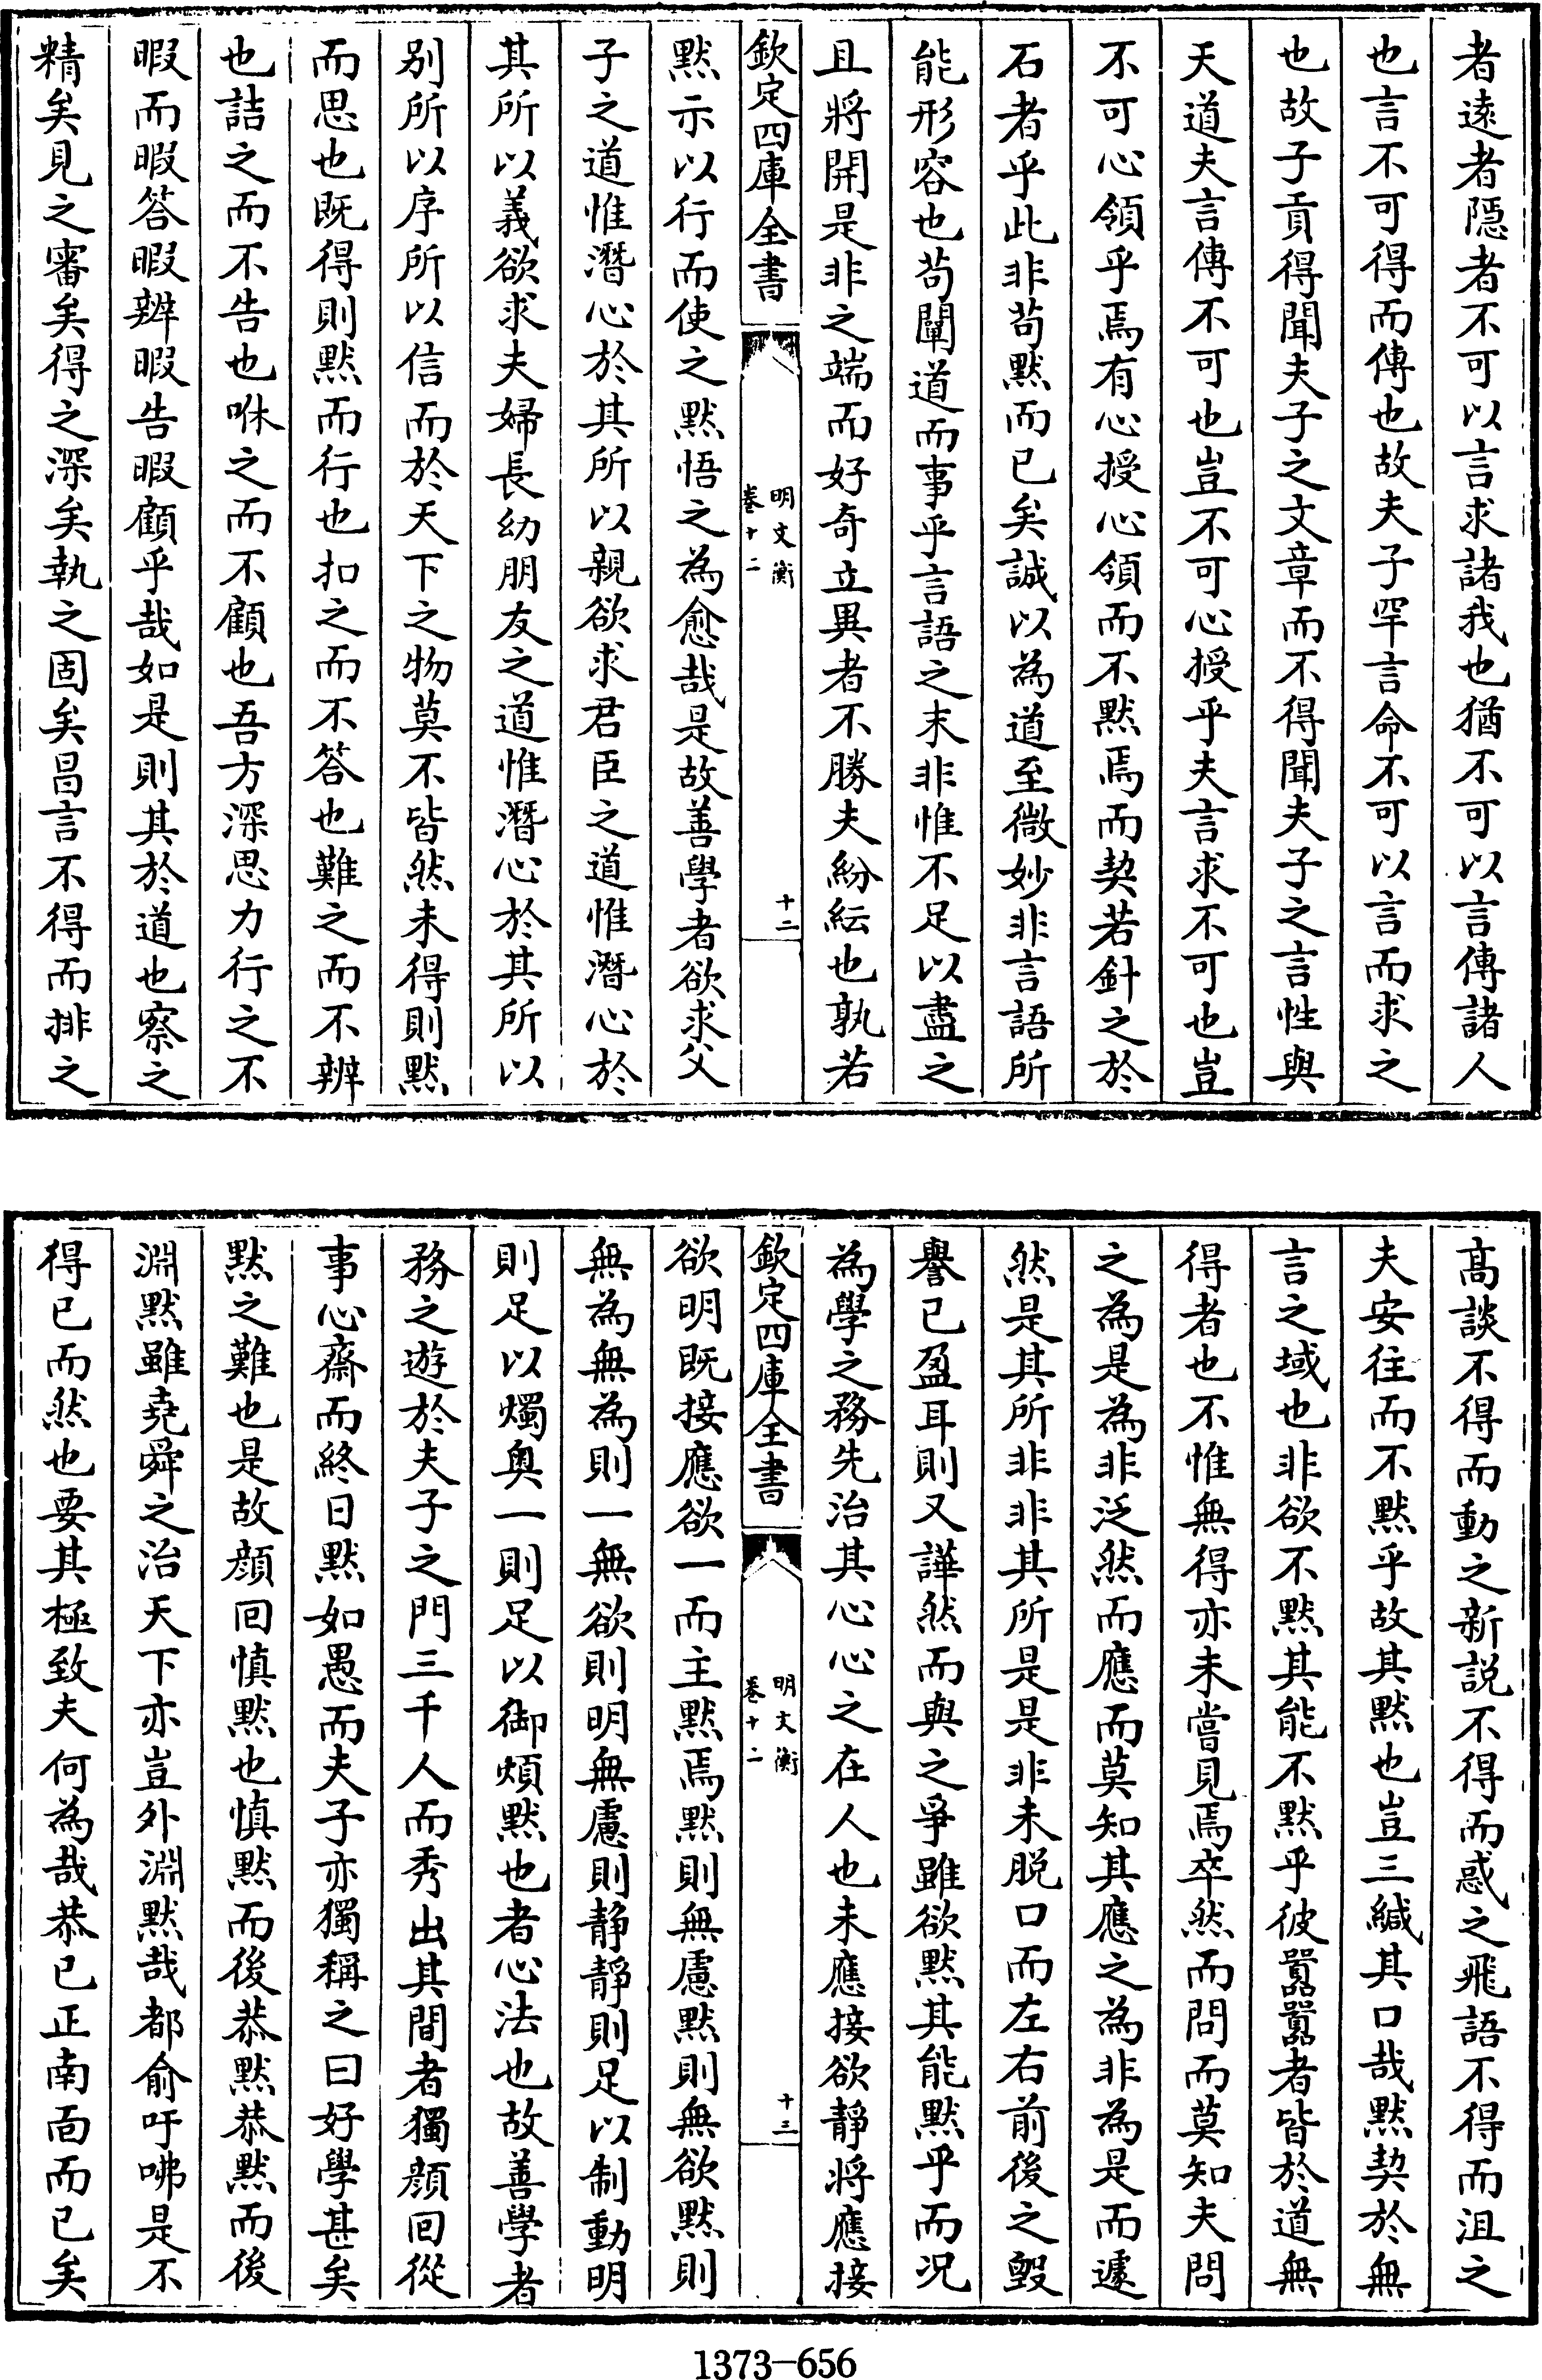 者遠者隱者不可以言求諸我也猶不可以言傳諸人
也言不可得而傳也故夫子罕言命不可以言而求之
也故子貢得聞夫子之文章而不得聞夫子之言性與
天道夫言傳不可也豈不可心授乎夫言求不可也豈
不可心領乎焉有心授心領而不黙焉而契若針之於
石者乎此非苟黙而已矣誠以為道至微妙非言語所
能形容也苟闡道而事乎言語之末非惟不足以盡之
且將開是非之端而好奇立異者不勝夫紛紜也孰若
欽定四庫全書
明文衡
卷十二
十二
黙示以行而使之黙悟之為愈哉是故善學者欲求父
子之道惟潛心於其所以親欲求君臣之道惟潛心於
其所以義欲求夫婦長幼朋友之道惟潛心於其所以
别所以序所以信而於天下之物莫不皆然未得則黙
而思也既得則黙而行也扣之而不答也難之而不辨
也詰之而不告也咻之而不顧也吾方深思力行之不
暇而暇答暇辨暇告暇顧乎哉如是則其於道也察之
精矣見之審矣得之深矣執之固矣昌言不得而排之
髙談不得而動之新説不得而惑之飛語不得而沮之
夫安往而不黙乎故其黙也豈三緘其口哉黙契於無
言之域也非欲不黙其能不黙乎彼囂囂者皆於道無
得者也不惟無得亦未嘗見焉卒然而問而莫知夫問
之為是為非泛然而應而莫知其應之為非為是而遽
然是其所非非其所是是非未脱口而左右前後之毀
譽已盈耳則又譁然而與之爭雖欲黙其能黙乎而况
為學之務先治其心心之在人也未應接欲靜將應接
欽定四庫全書
明文衡
卷十二
十三
欲明既接應欲一而主黙焉黙則無慮黙則無欲黙則
無為無為則一無欲則明無慮則静靜則足以制動明
則足以燭奥一則足以御煩黙也者心法也故善學者
務之遊於夫子之門三千人而秀出其間者獨顔回從
事心齋而終日黙如愚而夫子亦獨稱之曰好學甚矣
黙之難也是故顔回慎黙也慎黙而後恭黙恭黙而後
淵黙雖堯舜之治天下亦豈外淵黙哉都俞吁咈是不
得已而然也要其極致夫何為哉恭已正南面而已矣
1373-656